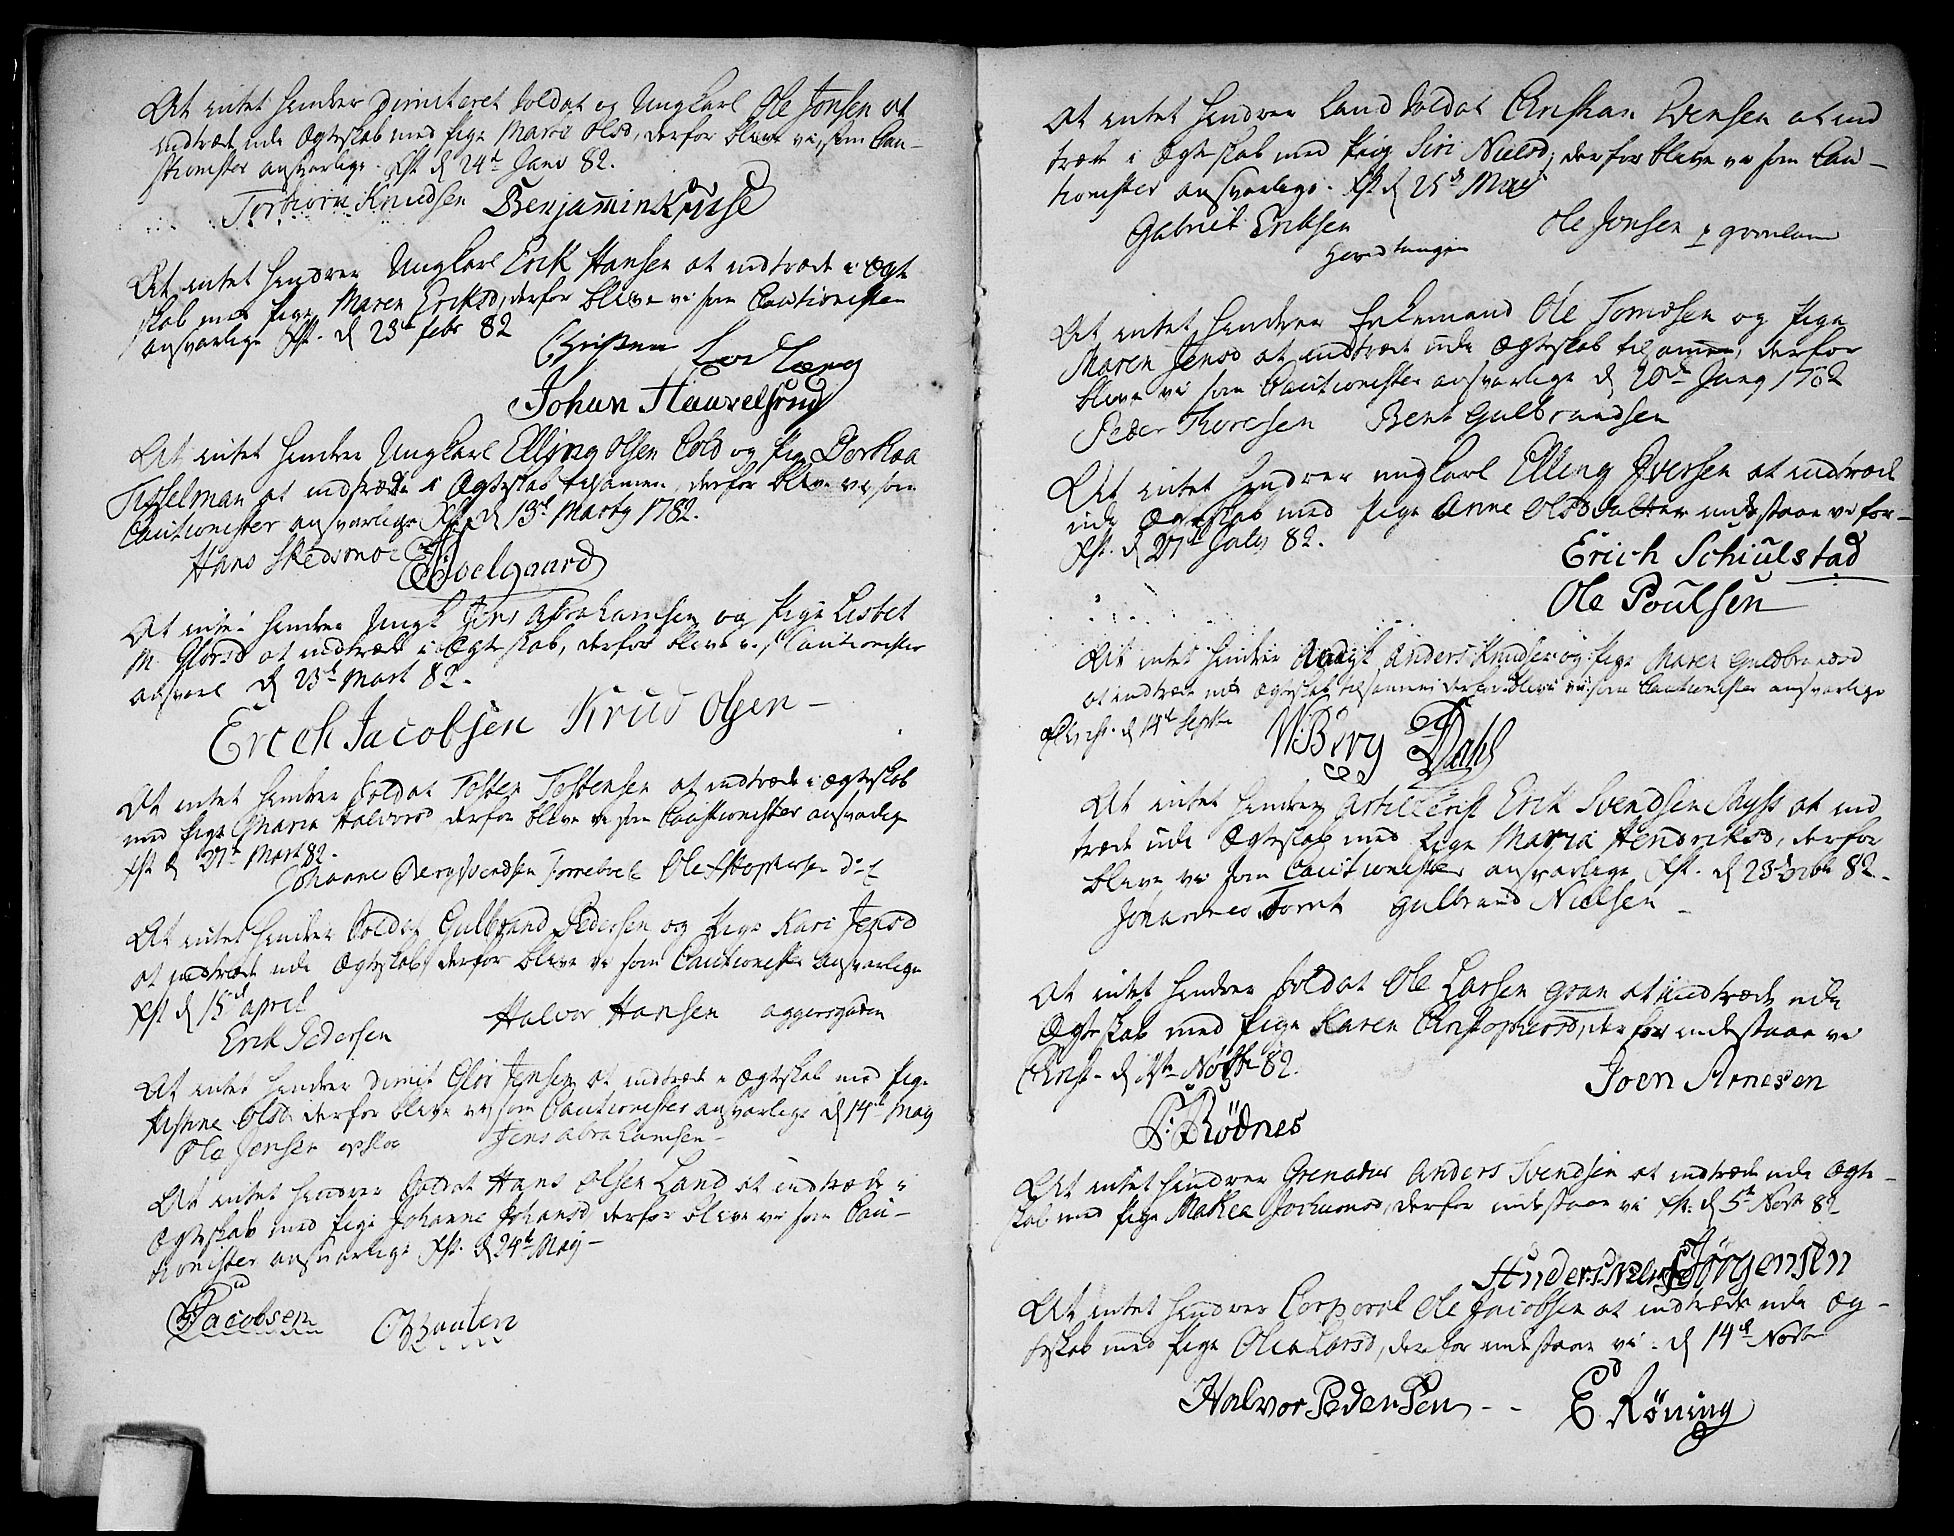 At intet hindrer Dimiteret Soldat og Ungkarl Ole Jonsen at
indtræde udi Ægteskab med Pige Mari Olsd, derfor blive vi, som Cau-
tionister ansvarlige. Xst d 24de Janv 82.
Torbiörn Knudsen Benjamin Kruse
At intet hindrer Ungkarl Erik Hansen at indtræde i Ægt
skab med Pige Maren Eriksd, derfor blive vi som Cautionister
ansvarlige Xst. d 23de febr 82
Christen
Johan Hauvelsrud
At intet hindrer Ungkarl Elling Olsen Cold og Pige Dorthea
Tisselman at indtræde i Ægteskab tilsamen, derfor blive vi som
Cautionister ansvarlige Xst d 13de Marty 1782.
Hans Skedsmoe
At intet hindrer Ungk Jens Abrahamsen og Pige Lisbet
M. Glorsd at indtræde i Ægteskab, derfor blive vi Cautionister
ansvarl d 23de Mart 82.
Erich Jacobsen Knud Olsen -
At intet hindrer Soldat Tosten Tostensen at indtræde i Ægteskab
med Pige Maria Halvorsd, derfor blive vi som Cautionister ansvarlige
Xst d 27de Mart 82.
Johanne Berg Svendsen Ole
At intet hindrer Soldat Gulbrand Pedersen og Pige Kari Jensd
at indtræde udi Ægteskab, derfor blive vi som Cautionister ansvarlige
Xst d 15de april
Erik Pedersen Halvor Hansen aggersgaden
At intet hindrer Dimit Glör Jensen at indtræde i Ægteskab med Pige
Kistine Olsd. derfor blive vi som Cautionister ansvarlige d 14de May
Ole Jensen Jens Abrahamsen -
At intet hindrer Soldat Hans Olsen Land at indtræde i
Ægteskab med Pige Johanne Johansd, derfor blive vi som Cau-
tionister ansvarlige Xst. d 24de May -
Jacobsen
At intet hindrer Land Soldat Christian Wensen at ind
træde i Ægteskab med Pige Siri Nielsd, derfor blive vi som Cau-
tionister ansvarlige. Xst d 25de May
Gabriel Eriksen Ole Jonsen
At intet hindrer Enkemand Ole Tomesen og Pige
Maren Jensd at indtræde udi Ægteskab tilsamen, derfor
blive vi som Cautionister ansvarlige d 20de Juny 1782
Peder Thoresen Bent Gulbrandsen
At intet hindrer ungkarl Elling Iversen at indtræde
udi Ægteskab med Pige Anne Olsd indestaae vi for -
Xst. d 27de July 82.
Erich Schiulstad
Ole Poulsen
At intet hindrer Anders Knudsen og Pige Maren Guldbrandsd
at indtræde udi Ægteskab tilsammen derfor blive vi som Cautionister ansvarlige
Christ. d 14de Septbr
N: Berg Dahl
At intet hindrer Artillerist Erik Svendsen at ind
træde udi Ægteskab med Pige Maria Hendriksd, derfor
blive vi som Cautionister ansvarlige Xst. d 23de 82.
Johannes Tomt Gulbrand Nielsen -
At intet hindrer Soldat Ole Larsen Gran at indtræde udi
Ægteskab med Pige Karen Christophersd, derfor indestaae vi
Christ - d Novbr 82.
Joen Arnesen
P: Rödnes
At intet hindrer Grenader Anders Svendsen at indtræde udi Ægte -
skab med Pige Mathea Jochumsd, derfor indestaae vi Xst. d 5te Novbr 82
Anders Jörgensen
At intet hindrer Corporal Ole Jacobsen at indtræde udi Æg -
teskab med Pige Olea Larsd, derfor indestaae vi. d 14de Novbr
Halvor Pedersen - - E. Röning